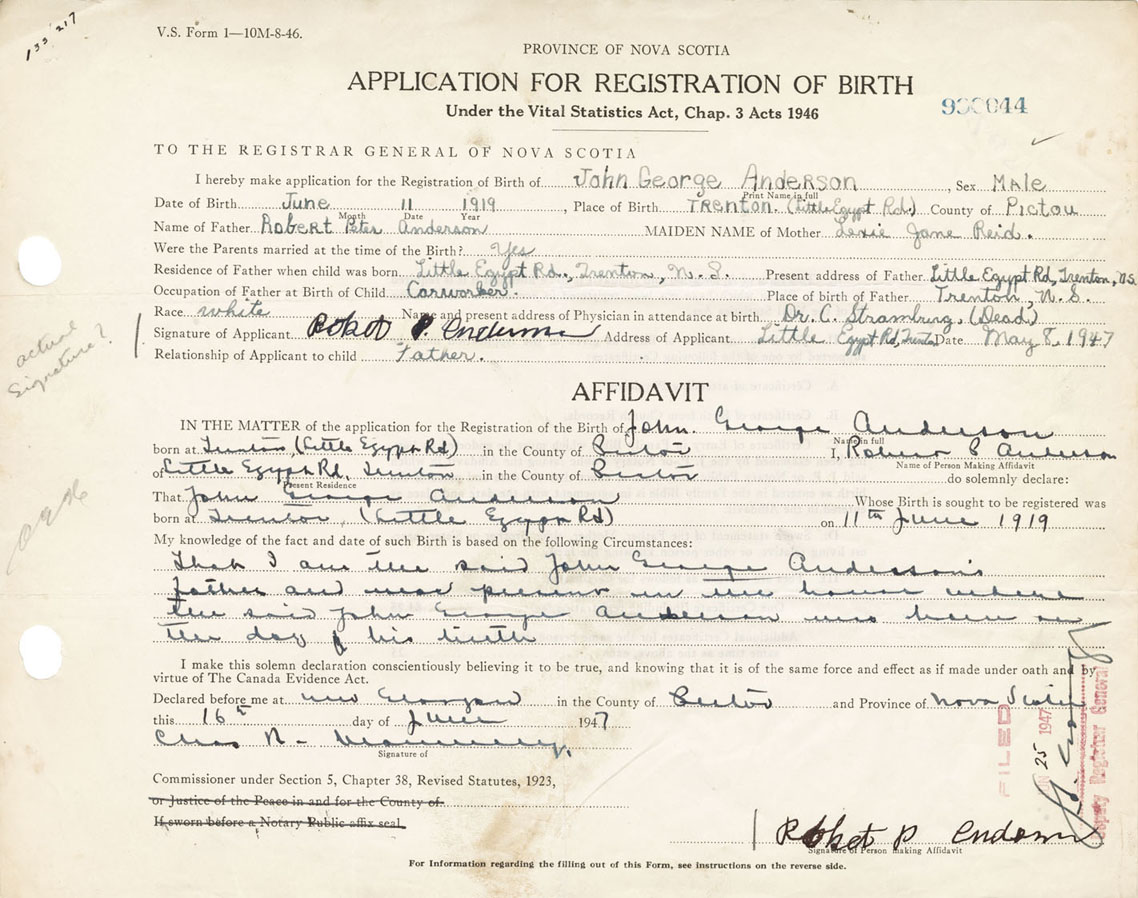 133 217
V.S. Form 1—10M-8-46.
PROVINCE OF NOVA SCOTIA
APPLICATION FOR REGISTRATION OF BIRTH
Under the Vital Statistics Act, Chap. 3 Acts 1946
TO THE REGISTRAR GENERAL OF NOVA SCOTIA
I hereby make application for the Registration of Birth of John George Anderson, Sex Male
Print Name in full
Date of Birth June 11 1919, Place of Birth Trenton. (Little Egypt Rd.) County of Pictou
Month Date Year
Name of Father Robert Peter Anderson MAIDEN NAME of Mother Lexie Jane Reid.
Were the Parents married at the time of the Birth? Yes
Residence of Father when child was born Little Egypt Rd., Trenton, N.S. Present address of Father Little Egypt Rd, Trenton, N.S.
Occupation of Father at Birth of Child Carworker. Place of birth of Father Trenton, N.S.
Race white Name and present address of Physician in attendance at birth Dr. C. Stramburg, (Dead)
Signature of Applicant Robet P. Enderson Address of Applicant Little Egypt Rd, Trenton Date May 8, 1947
Relationship of Applicant to child Father.
actual
Signature?
AFFIDAVIT
IN THE MATTER of the application for the Registration of the Birth of John George Anderson
Name in full
born at Trenton, (Little Egypt Rd) in the County of Pictou I, Robert P Anderson
Name of Person Making Affidavit
of Little Egypt Rd, Trenton in the County of Pictou do solemnly declare:
Present Residence
That John George Anderson Whose Birth is sought to be registered was
born at Trenton, (Little Egypt Rd) on 11th June 1919
My knowledge of the fact and date of such Birth is based on the following Circumstances:
That I am the said John George Anderson's
father and was present in the house where
the said John George Anderson was born on
the day of his birth
I make this solemn declaration conscientiously believing it to be true, and knowing that it is of the same force and effect as if made under oath and by
virtue of The Canada Evidence Act.
Declared before me at New Glasgow in the County of Pictou and Province of Nova Scotia
this 16th day of June 1947
Chas R.
Signature of
Commissioner under Section 5, Chapter 38, Revised Statutes, 1923,
or Justice of the Peace in and for the County of
If sworn before a Notary Public affix seal.
FILED
JUN 25 1947
Deputy Registrar General
Robet P Enderson
Signature of Person making Affidavit
For Information regarding the filling out of this Form, see instructions on the reverse side.